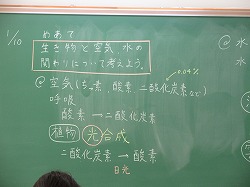 1/10 めあて
生き物と空気、水の
関わりについて考えよう。
0.04%
@空気(ちっ素、酸素、二酸化炭素など)
呼吸
酸素 → 二酸化炭素
植物 光合成
二酸化炭素 → 酸素
日光
@ 水